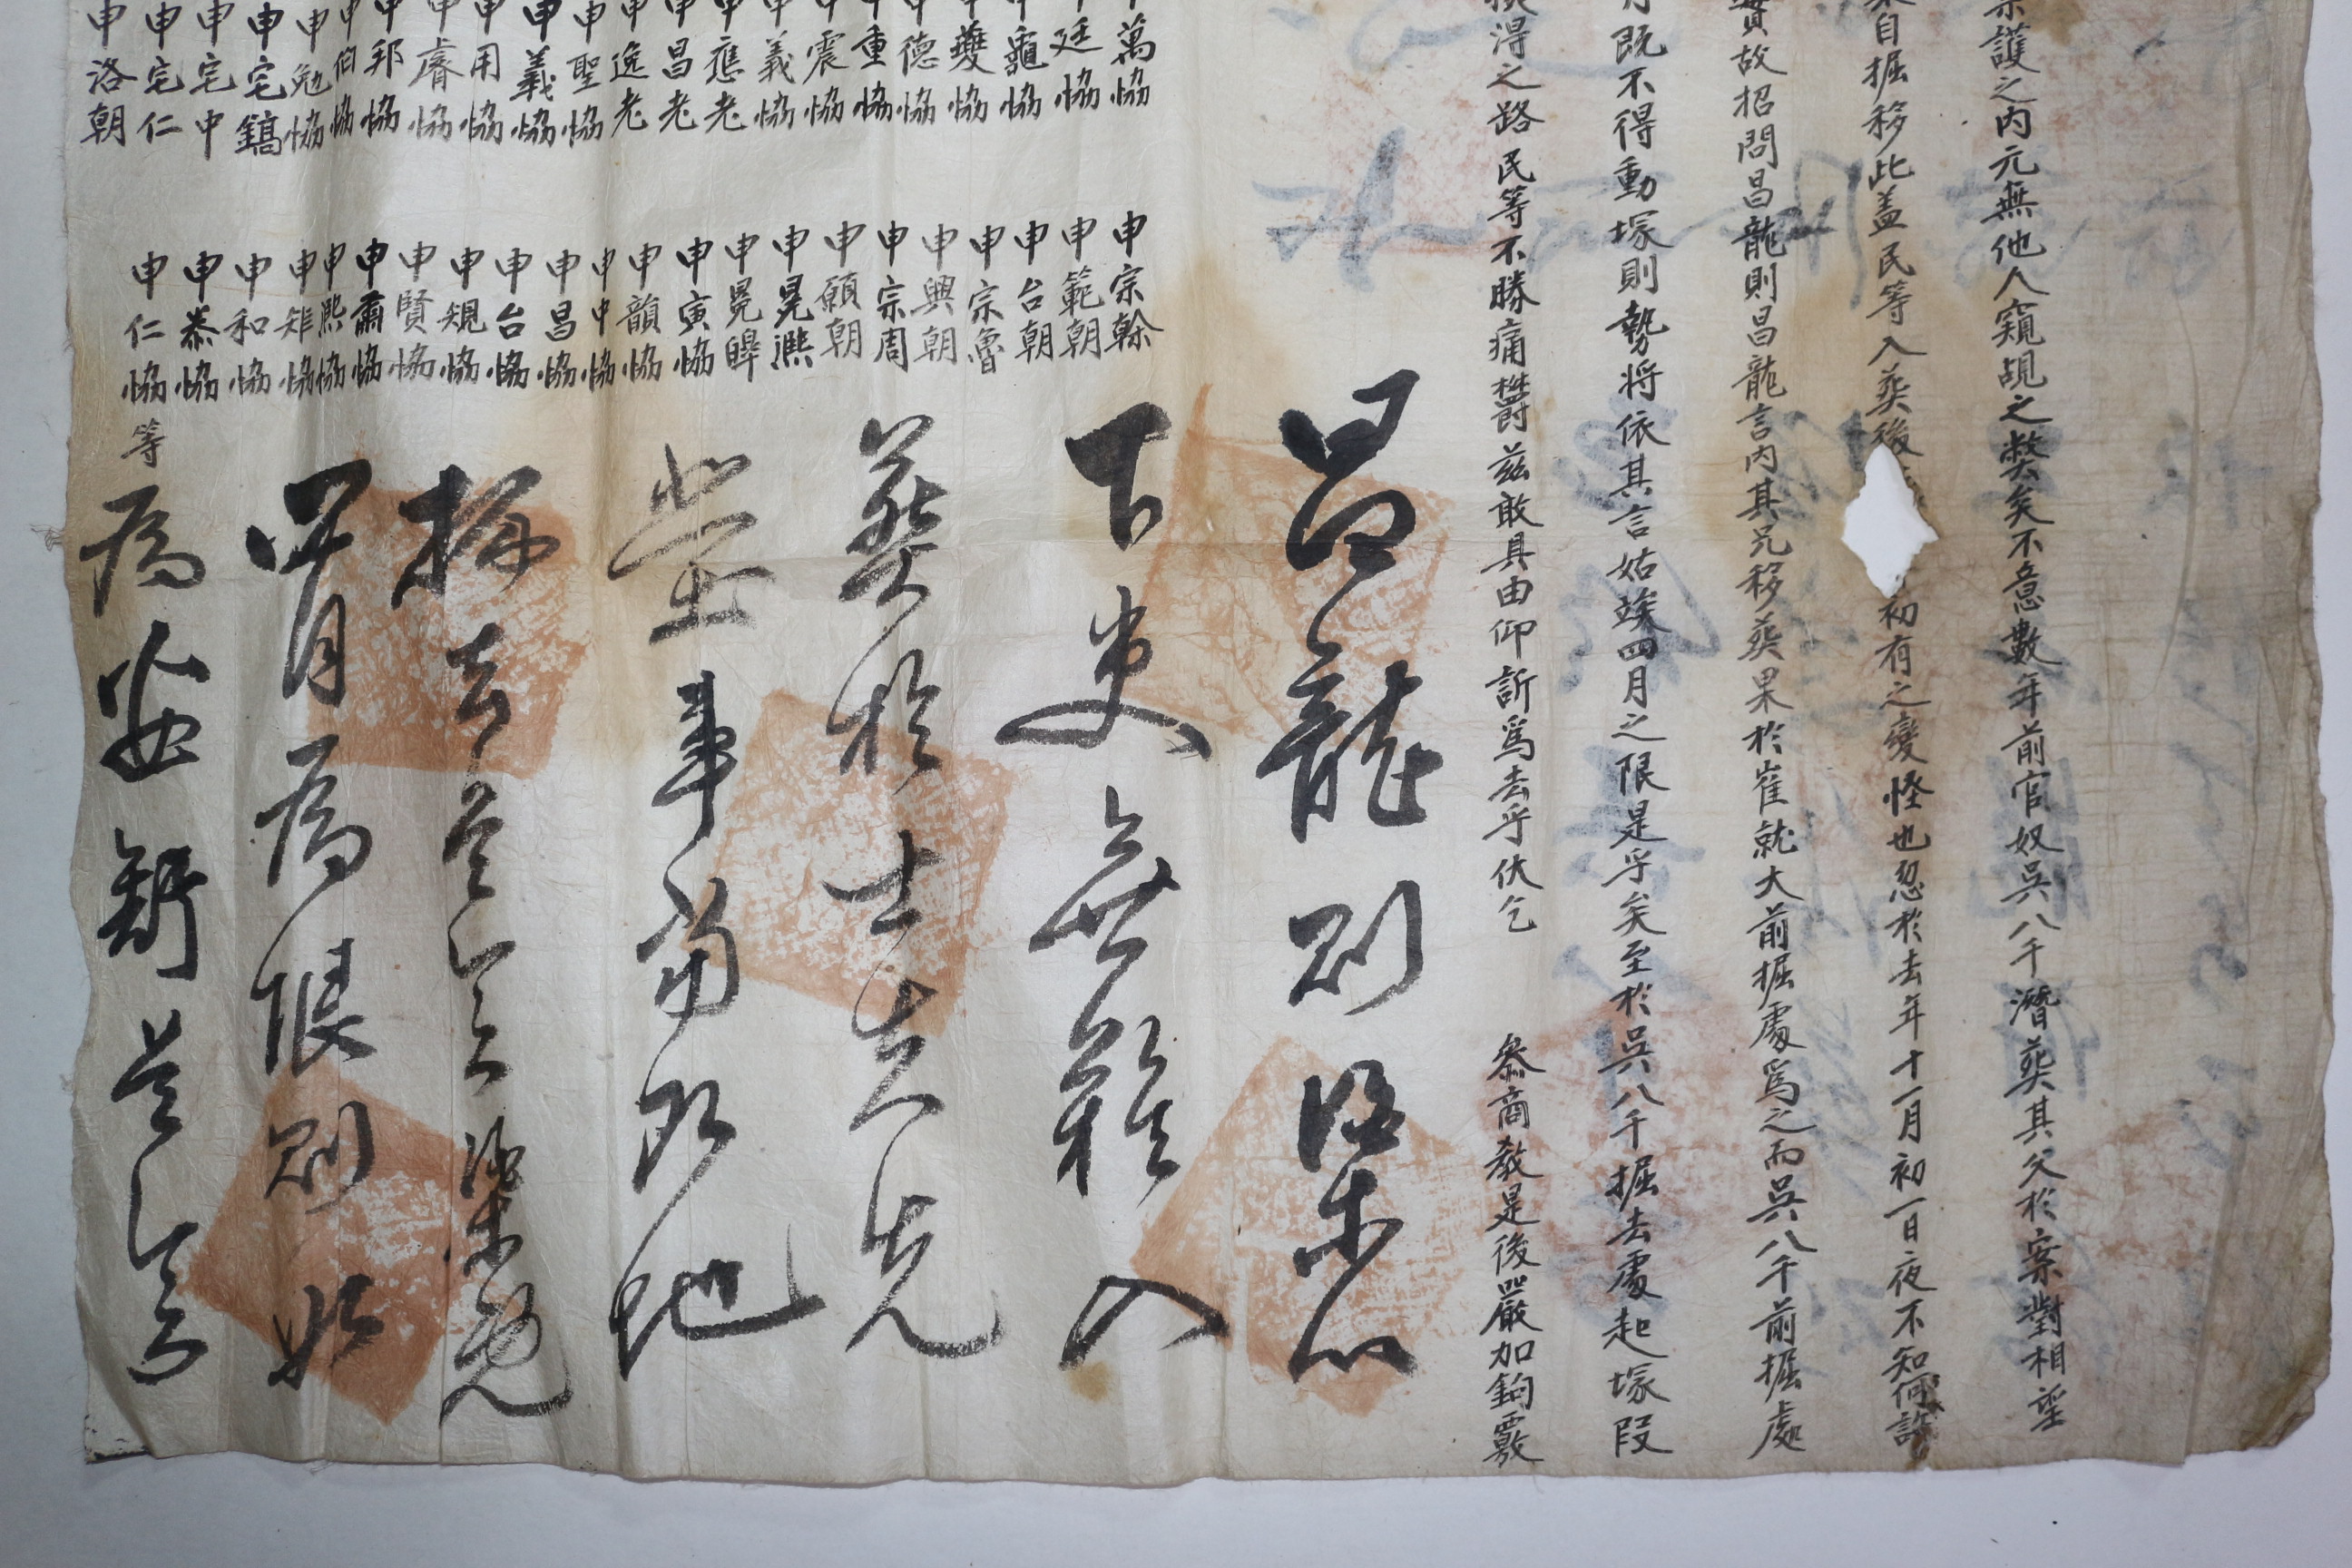 禁護之內元無他人窺覘之弊矣不意數年前官奴吳八千潛葬其父於案對相望
自掘移此盖民等入葬後初有之變怪也忽於去年十一月初一日夜不知何許
實故招問昌龍則昌龍言內其兄移葬果於崔就大前掘處爲之而吳八千前掘處
月既不得動塚則勢將依其言姑竢四月之限是乎矣至於吳八千掘去處起塚段
得之路民等不勝痛欝玆敢具由仰訴爲去乎伏乞
參商敎是後嚴加鉤覈
申萬協
申廷協
申龜協
申夔協
申德協
申重協
申震協
申義協
申應老
申昌老
申逸老
申聖協
申義協
申用協
申睿協
申邦協
申伯協
申勉協
申宅鎬
申宅中
申宅仁
申洛朝
申宗榦
申範朝
申台朝
申宗魯
申興朝
申宗周
申願朝
申冕熙
申冕皥
申寅協
申韻協
申中協
申昌協
申台協
申規協
申賢協
申肅協
申熙協
申矩協
申和協
申恭協
申仁協等
昌龍則渠以
下吏無難入
葬於士夫先
塋事甚
掘去是矣渠
四月爲限則姑
爲安舒是矣